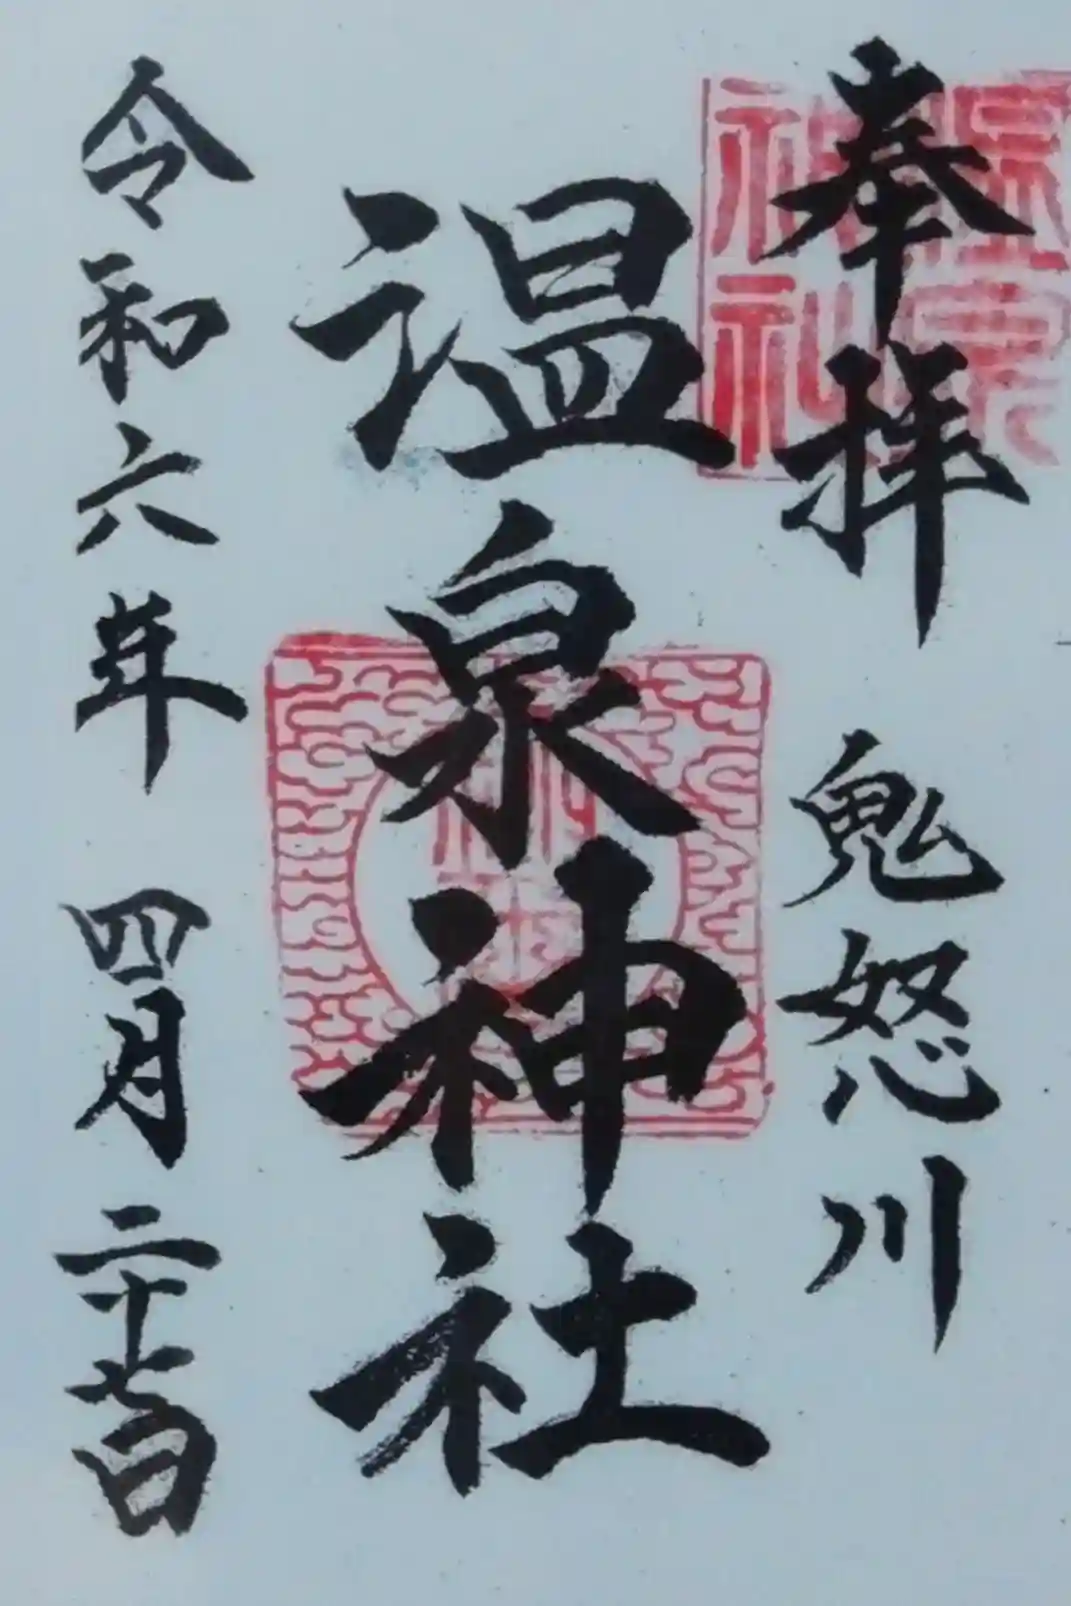 奉拝
鬼怒川
温泉神社
令和六年
四月
二十七日